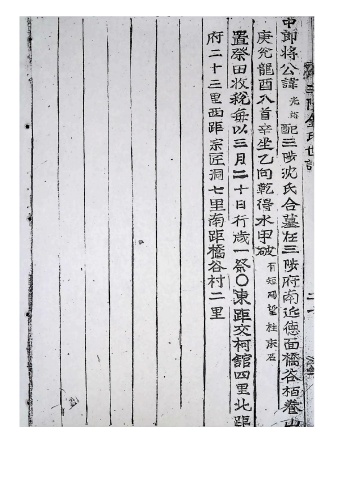 中郎將公諱光裕配三陟沈氏合墓在三陟府南近德面橋谷栢巷山
庚兌龍酉入首辛坐乙向乾得水甲破有短碣望柱床石
置祭田收稅每以三月二十日行歲一祭○東距交柯館四里北距
府二十三里西距宗匠洞七里南距橋谷村二里